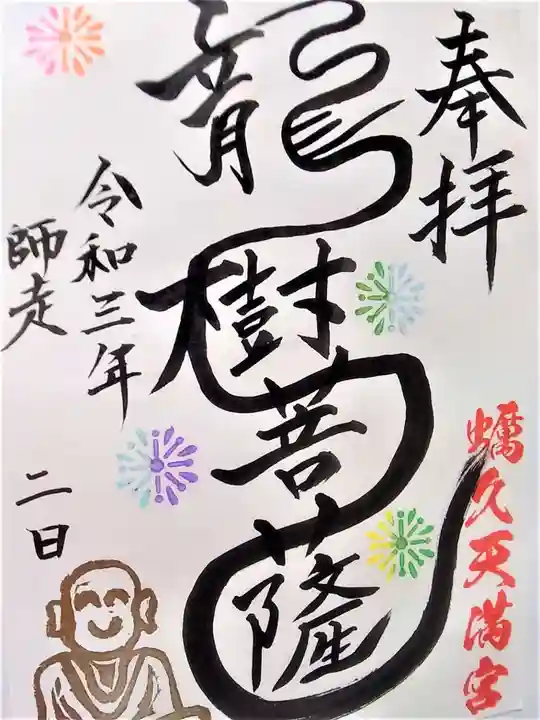 奉拝
龍樹菩薩
蠣久天満宮
令和三年
師走
二日